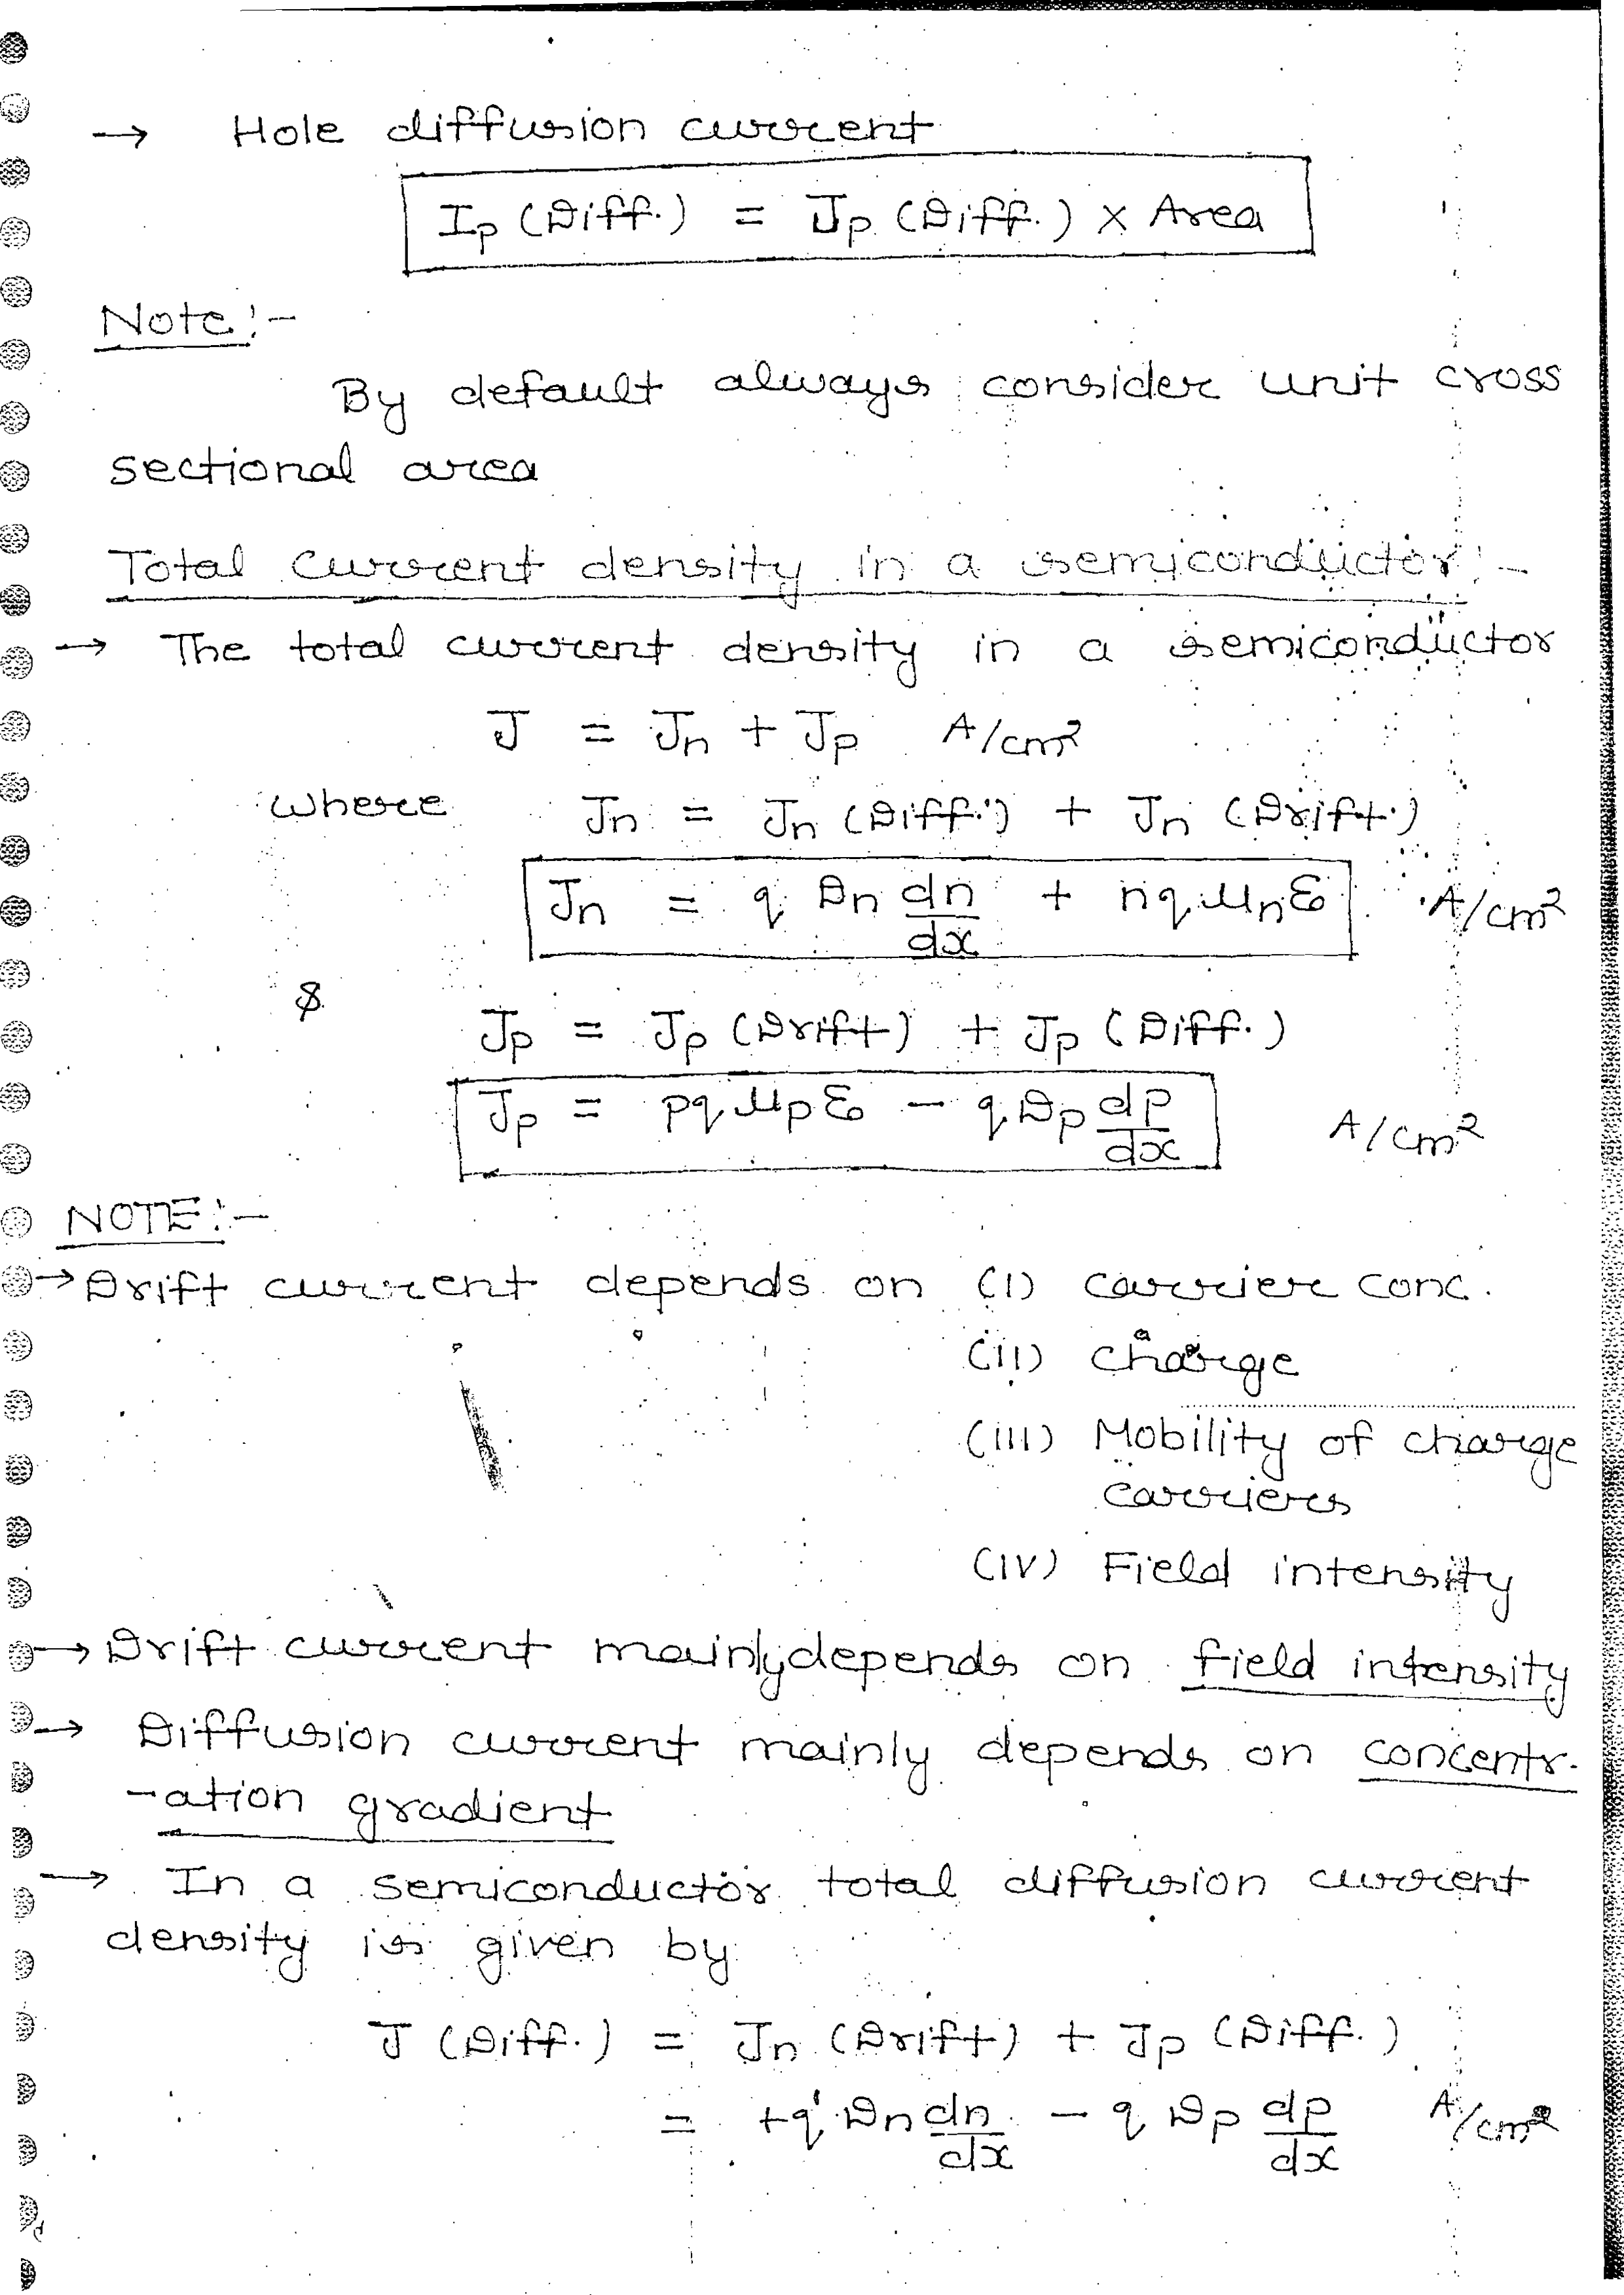 → Hole diffusion current
Ip (Diff.) = Jp (Diff.) × Area
Note:-
By default always consider unit cross
sectional area
Total current density in a semiconductor:-
→ The total current density in a semiconductor
J = Jn + Jp A/cm²
where Jn = Jn (Diff.) + Jn (Drift.)
Jn = q Dn dn/dx + nqμnε A/cm²
& Jp = Jp (Drift) + Jp (Diff.)
Jp = pqμpε - qDp dp/dx A/cm²
NOTE:-
→ Drift current depends on (i) carrier conc.
(ii) charge
(iii) Mobility of charge
carriers
(iv) Field intensity
→ Drift current mainly depends on field intensity
→ Diffusion current mainly depends on concentr-
-ation gradient
→ In a semiconductor total diffusion current
density is given by
J (Diff.) = Jn (Drift) + Jp (Diff.)
= +q Dn dn/dx - q Dp dp/dx A/cm²